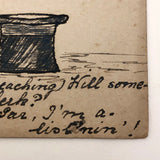 eaching) Will some-
erk?"
Sar, I'm a-
lis'nin'!